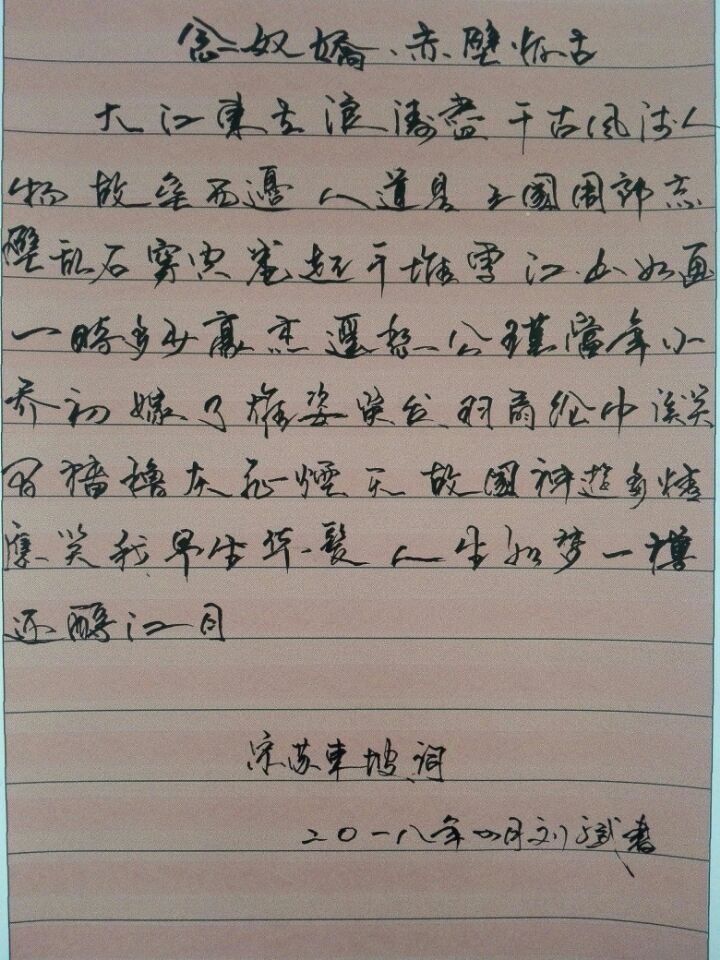 念奴嬌·赤壁怀古
大江東去浪濤盡千古風流人
物故垒西邊人道是三國周郎赤
壁乱石穿空卷起千堆雪江山如画
一時多少豪杰遥想公瑾當年小
乔初嫁了雄姿英发羽扇纶巾谈笑
间檣櫓灰飛煙灭故國神遊多情
應笑我早生华髮人生如梦一樽
还酹江月
宋苏東坡詞
二〇一八年四月刘斌書